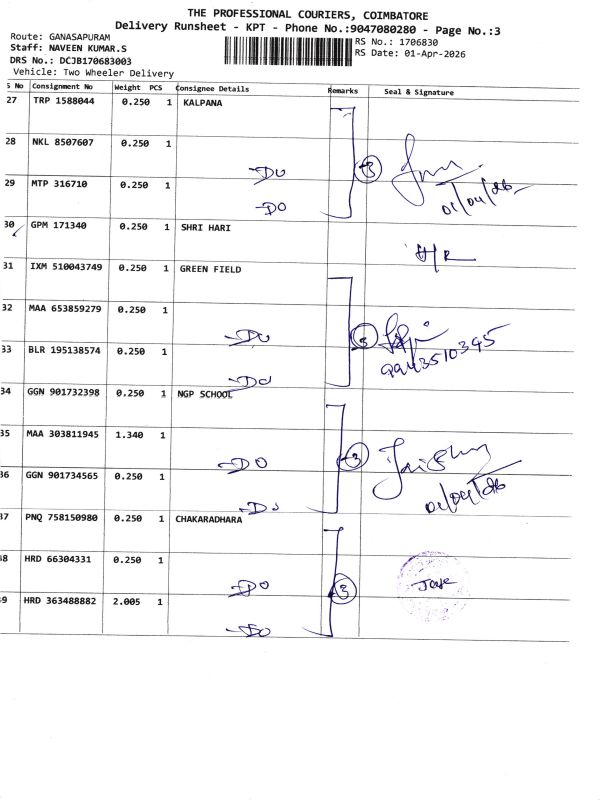 THE PROFESSIONAL COURIERS, COIMBATORE
Delivery Runsheet - KPT - Phone No.:9047080280 - Page No.:3
Route: GANASAPURAM
RS No.: 1706830
Staff: NAVEEN KUMAR.S
RS Date: 01-Apr-2026
DRS No.: DCJB170683003
Vehicle: Two Wheeler Delivery
S No Consignment No Weight PCS Consignee Details Remarks Seal & Signature
27 TRP 1588044 0.250 1 KALPANA
28 NKL 8507607 0.250 1
-DO
3
29 MTP 316710 0.250 1
-DO
01/04/26
30 GPM 171340 0.250 1 SHRI HARI
H/R
31 IXM 510043749 0.250 1 GREEN FIELD
32 MAA 653859279 0.250 1
-DO
3
33 BLR 195138574 0.250 1
9943510345
-DO
34 GGN 901732398 0.250 1 NGP SCHOOL
35 MAA 303811945 1.340 1
-DO
3
36 GGN 901734565 0.250 1
-DO
01/04/26
37 PNQ 758150980 0.250 1 CHAKARADHARA
38 HRD 66304331 0.250 1
-DO
3
39 HRD 363488882 2.005 1
-DO